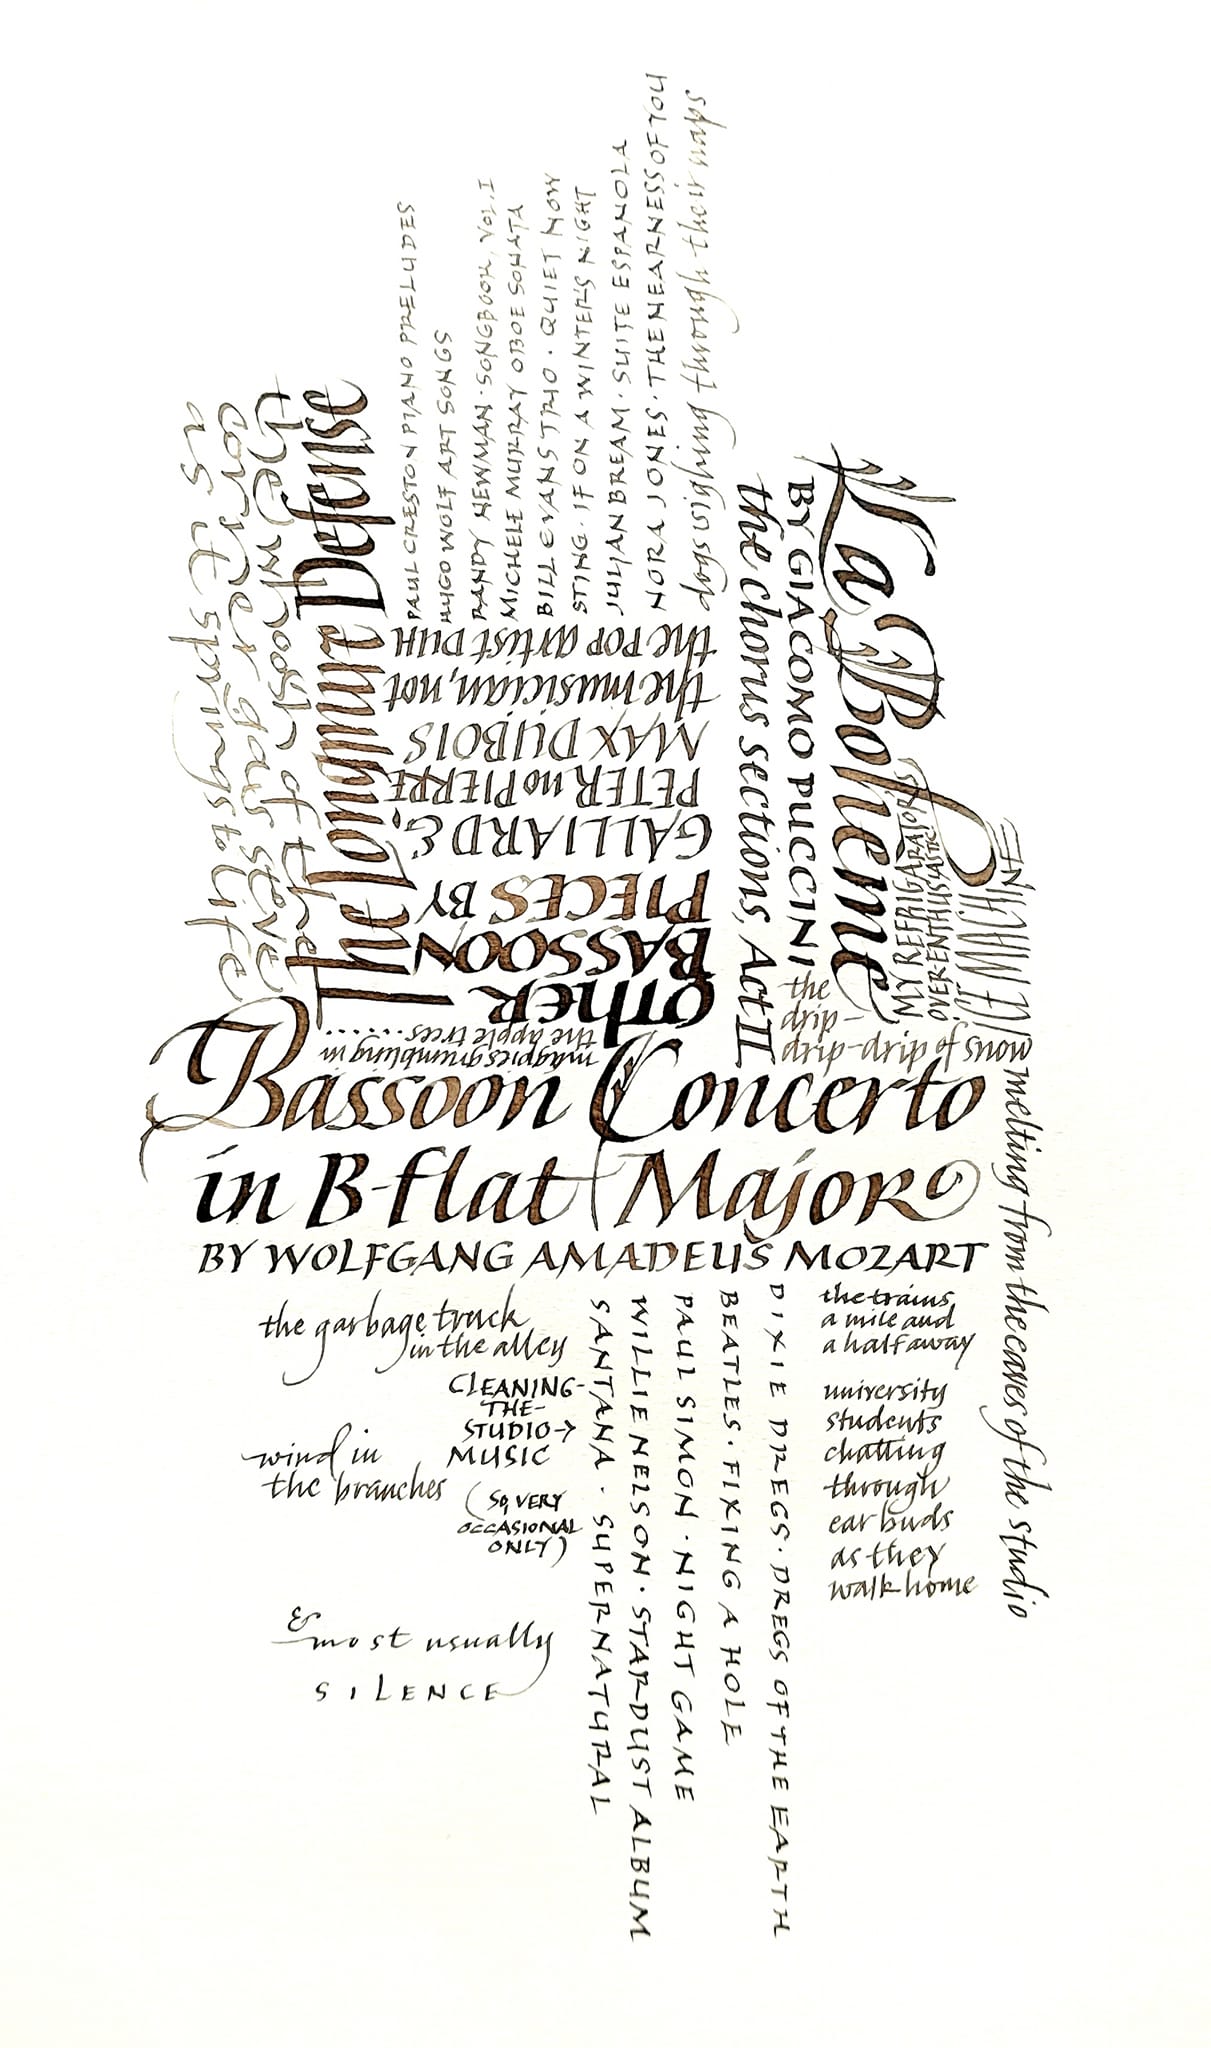 as it springs to life
corner gas stove
the whoosh of the
The Longmire Defense
PAUL CRESTON PIANO PRELUDES
HUGO WOLF ART SONGS
RANDY NEWMAN · SONGBOOK, VOL. I
MICHELE MURRAY OBOE SONATA
BILL EVANS TRIO · QUIET NOW
STING · IF ON A WINTER'S NIGHT
JULIAN BREAM · SUITE ESPANOLA
NORA JONES · THE NEARNESS OF YOU
dogs sighing through their naps
OTHER
BASSOON
PIECES BY
GALLIARD &
PETER no PIERRE
MAX DUBOIS
the musician, not
the POP artist DUH
La Boheme
BY GIACOMO PUCCINI
the chorus sections, Act II
MY REFRIGARATOR'S
OVERENTHUSIASTIC
ICE MACHINE
magpies grumbling in
the apple trees......
the
drip-
drip-drip of snow
melting from the eaves of the studio
Bassoon Concerto
in B-flat Major
BY WOLFGANG AMADEUS MOZART
the garbage truck
in the alley
CLEANING-
THE-
STUDIO→
MUSIC
(SO, VERY
OCCASIONAL
ONLY)
wind in
the branches
& most usually
SILENCE
DIXIE DREGS · DREGS OF THE EARTH
BEATLES · FIXING A HOLE
PAUL SIMON · NIGHT GAME
WILLIE NELSON · STARDUST ALBUM
SANTANA · SUPERNATURAL
the trains
a mile and
a half away
university
students
chatting
through
ear buds
as they
walk home